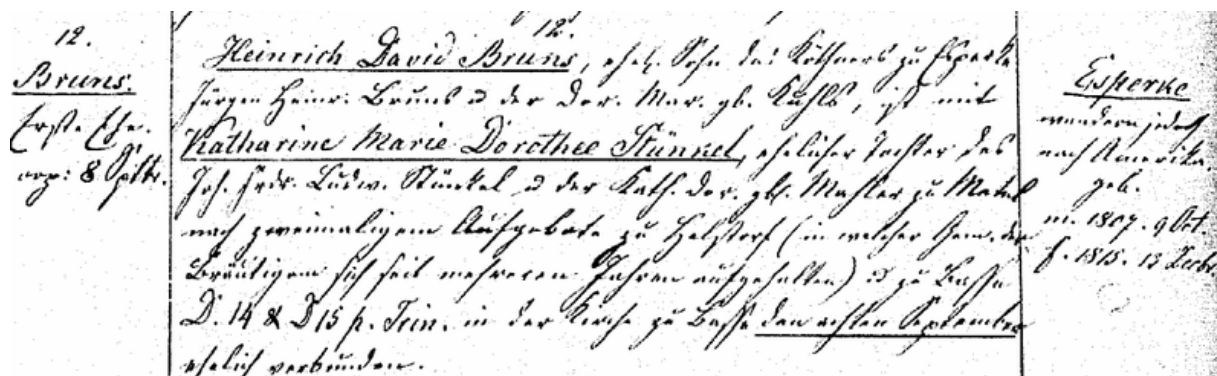 12.
Bruns.
Erste Ehe.
cop: 8 Sptbr.
12.
Heinrich David Bruns, ehel. Sohn des Köthners zu Esperke
Jürgen Heinr. Bruns u der Dor. Mar. gb. Kahls, ist mit
Katharine Marie Dorothee Stünkel, ehelicher Tochter des
Joh. Frdr. Ludw. Stünkel u der Kath. Dor. gb. Mahler zu Metel
nach zweimaligem Aufgebote zu Helstorf (in welcher Gem. der
Bräutigam sich seit mehreren Jahren aufgehalten) u zu Basse
D. 14 & D 15 p. Trin. in der Kirche zu Basse den achten September
ehelich verbunden.
Esperke
wandern jedoch
nach Amerika.
geb.
m. 1807. 9 Oct.
f. 1815. 13 Decbr.